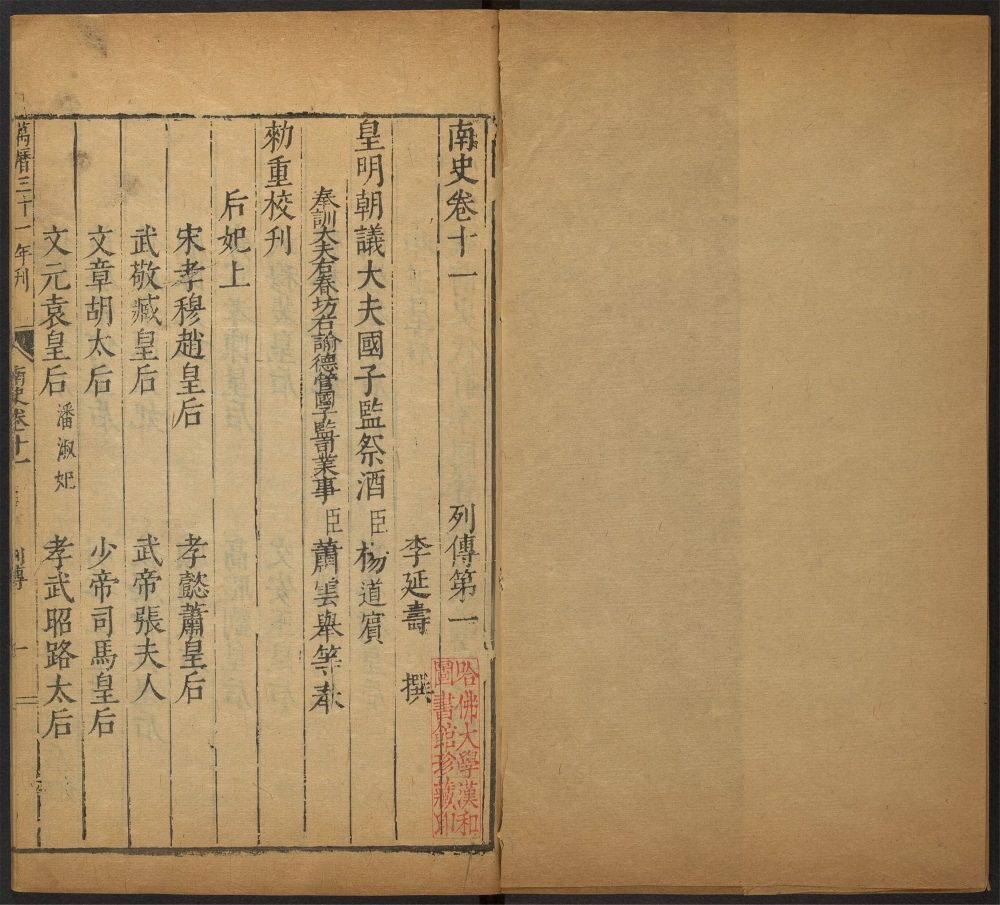 南史卷十一 列傳第一
李延壽 撰
皇明朝議大夫國子監祭酒臣楊道賓
奉訓大夫右春坊右諭德管國子監司業事臣蕭雲舉等奉
勑重校刊
后妃上
宋孝穆趙皇后 孝懿蕭皇后
武敬臧皇后 武帝張夫人
文章胡太后 少帝司馬皇后
文元袁皇后 潘淑妃 孝武昭路太后
萬曆三十一年刊 南史卷十一 列傳 一
哈佛大學漢和
圖書館珍藏印